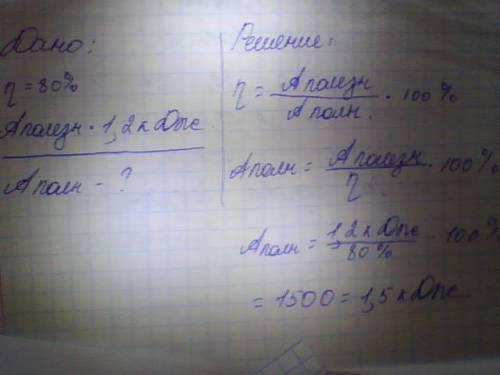 Дано:
η = 80%
Аполезн · 1,2 кДж
Аполн - ?
Решение:
η = Аполезн / Аполн. · 100%
Аполн = Аполезн / η · 100%
Аполн = 1,2 кДж / 80% · 100%
= 1500 = 1,5 кДж